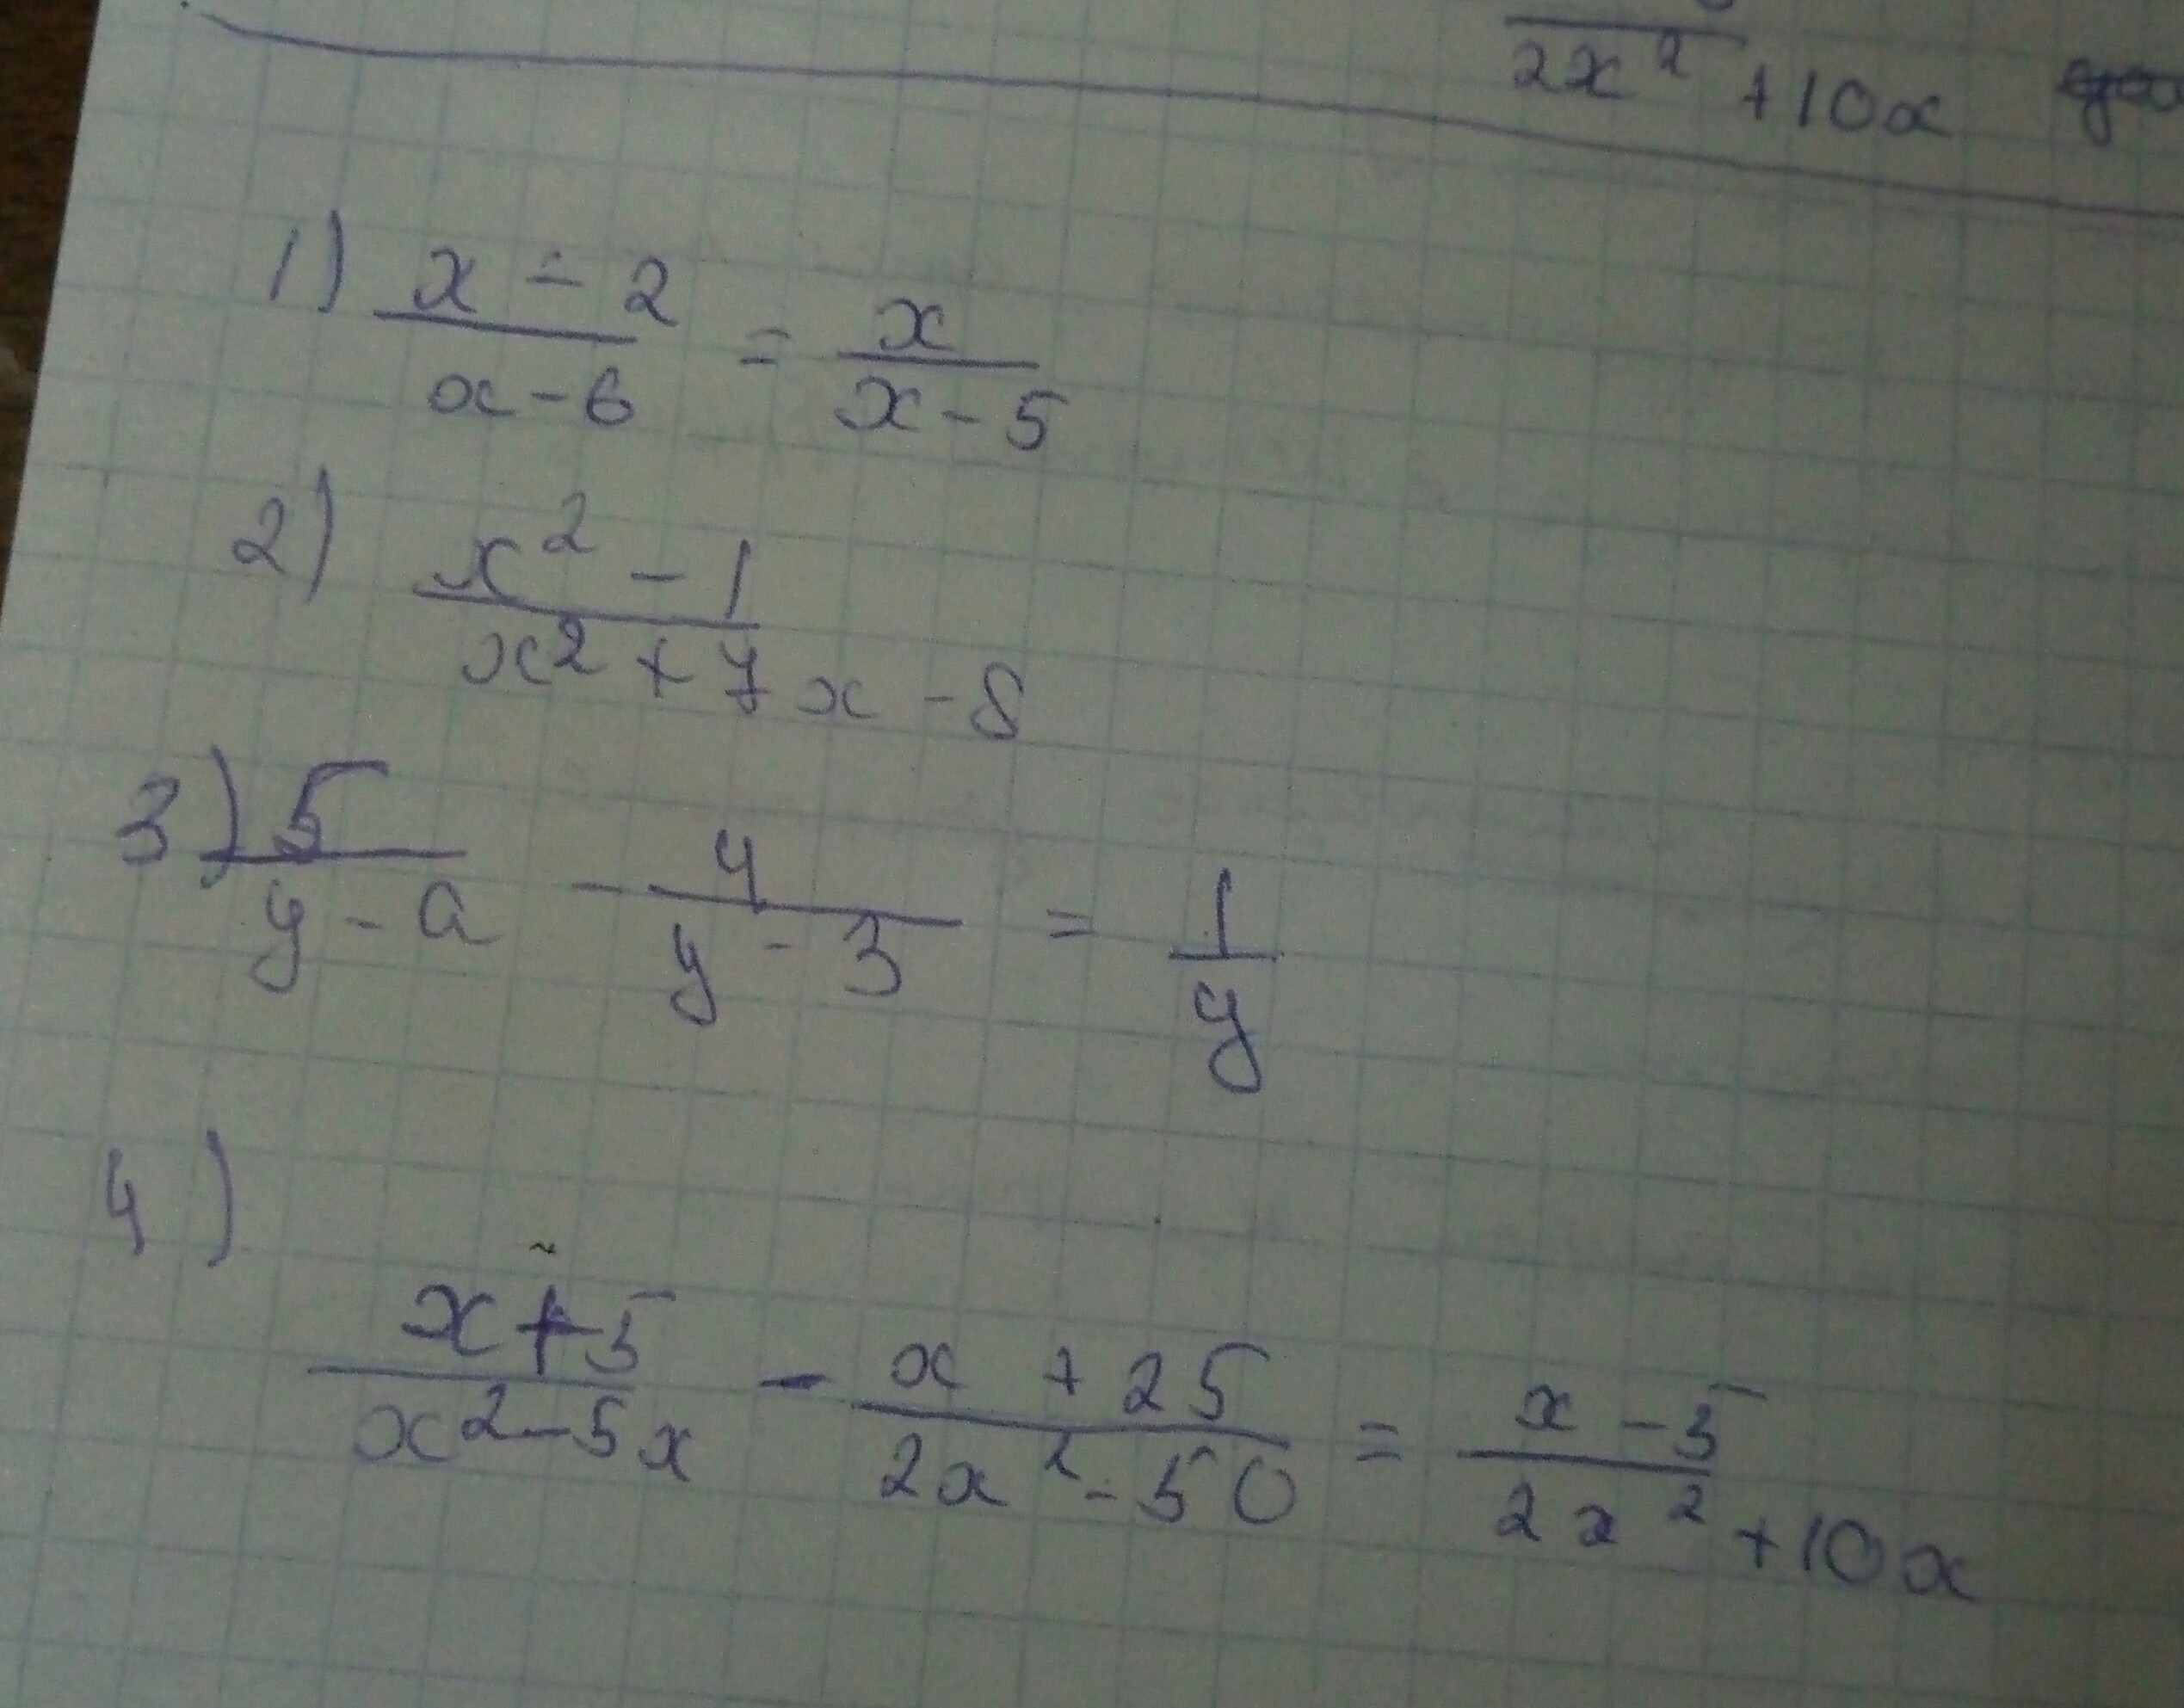 2x² + 10x
1) (x - 2)/(x - 6) = x/(x - 5)
2) (x² - 1)/(x² + 7x - 8)
3) 5/(y - a) - 4/(y - 3) = 1/y
4)
(x + 5)/(x² - 5x) - (x + 25)/(2x² - 50) = (x - 5)/(2x² + 10x)